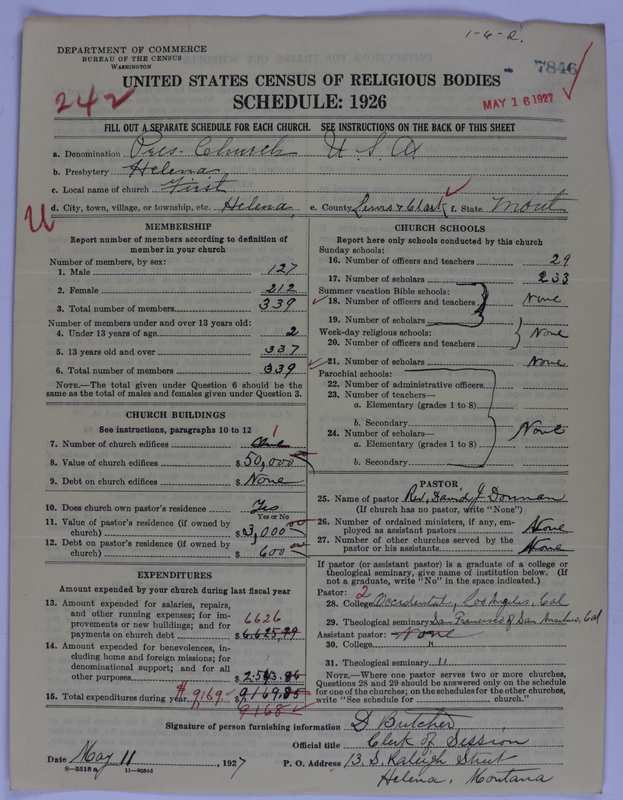 1-6-2.
DEPARTMENT OF COMMERCE
BUREAU OF THE CENSUS
WASHINGTON
7846
UNITED STATES CENSUS OF RELIGIOUS BODIES
242
SCHEDULE: 1926
MAY 16 1927
FILL OUT A SEPARATE SCHEDULE FOR EACH CHURCH. SEE INSTRUCTIONS ON THE BACK OF THIS SHEET
a. Denomination Pres. Church U. S. A
b. Presbytery Helena
c. Local name of church First
d. City, town, village, or township, etc. Helena e. County Lewis & Clark f. State Mont
U
MEMBERSHIP
Report number of members according to definition of
member in your church
Number of members, by sex:
1. Male 127
2. Female 212
3. Total number of members 339
Number of members under and over 13 years old:
4. Under 13 years of age 2
5. 13 years old and over 337
6. Total number of members 339
NOTE.—The total given under Question 6 should be the
same as the total of males and females given under Question 3.
CHURCH BUILDINGS
See instructions, paragraphs 10 to 12
7. Number of church edifices One 1
8. Value of church edifices $50,000
9. Debt on church edifices $None
10. Does church own pastor's residence Yes
Yes or No
11. Value of pastor's residence (if owned by
church) $3,000 00
12. Debt on pastor's residence (if owned by
church) $600 00
EXPENDITURES
Amount expended by your church during last fiscal year
13. Amount expended for salaries, repairs,
and other running expenses; for im-
provements or new buildings; and for
payments on church debt $6.625,99
6626
14. Amount expended for benevolences, in-
cluding home and foreign missions; for
denominational support; and for all
other purposes $2543.86
15. Total expenditures during year $9169. $9,169.85
9168
CHURCH SCHOOLS
Report here only schools conducted by this church
Sunday schools:
16. Number of officers and teachers 29
17. Number of scholars 233
Summer vacation Bible schools:
18. Number of officers and teachers None
19. Number of scholars
Week-day religious schools:
20. Number of officers and teachers None
21. Number of scholars None
Parochial schools:
22. Number of administrative officers
23. Number of teachers—
a. Elementary (grades 1 to 8)
b. Secondary
24. Number of scholars— None
a. Elementary (grades 1 to 8)
b. Secondary
PASTOR
25. Name of pastor Rev. David J. Donnan
(If church has no pastor, write "None")
26. Number of ordained ministers, if any, em-
ployed as assistant pastors None
27. Number of other churches served by the
pastor or his assistants None
If pastor (or assistant pastor) is a graduate of a college or
theological seminary, give name of institution below. (If
not a graduate, write "No" in the space indicated.)
Pastor: 2
28. College Occidental, Los Angeles, Cal
29. Theological seminary San Francisco of San Anselmo, Cal
Assistant pastor: None
30. College "
31. Theological seminary "
NOTE.—Where one pastor serves two or more churches,
Questions 28 and 29 should be answered only on the schedule
for one of the churches; on the schedules for the other churches,
write "See schedule for church."
Signature of person furnishing information D Butcher
Official title Clerk of Session
Date May 11, 1927 P. O. Address 13. S. Raleigh Street
8—5515a 11—90846 Helena, Montana